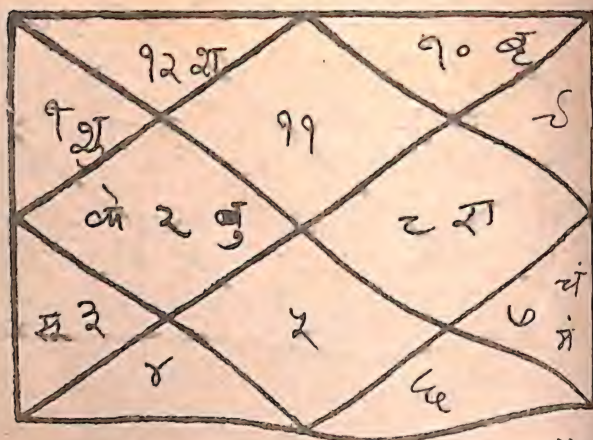 १२ श
१० बृ
१ शु
११
९
के २ बु
८ रा
सू ३
५
७ चं मं
४
६